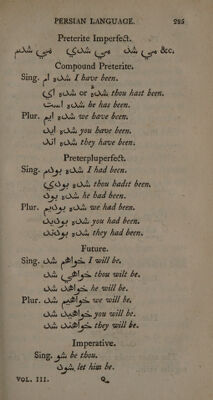 PERSIAN LANGUAGE. 225
Preterite Imperfect.
می شدم می شدي می شد &c.
Compound Preterite.
Sing. شده ام I have been.
شده اي or شدهٔ thou hast been.
شده است he has been.
Plur. شده ایم we have been.
شده اید you have been.
شده اند they have been.
Preterpluperfect.
Sing. شده بودم I had been.
شده بودي thou hadst been.
شده بود he had been.
Plur. شده بودیم we had been.
شده بودید you had been.
شده بودند they had been.
Future.
Sing. خواهم شد I will be.
خواهي شد thou wilt be.
خواهد شد he will be.
Plur. خواهیم شد we will be.
خواهید شد you will be.
خواهند شد they will be.
Imperative.
Sing. شو be thou.
شود let him be.
VOL. III. Q